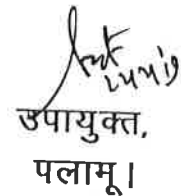 उपायुक्त,
पलामू।